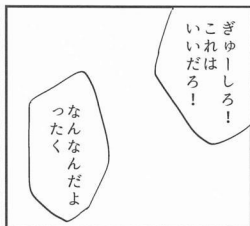 ぎゅーしろ!
これは
いいだろ!
なんなんだよ
ったく